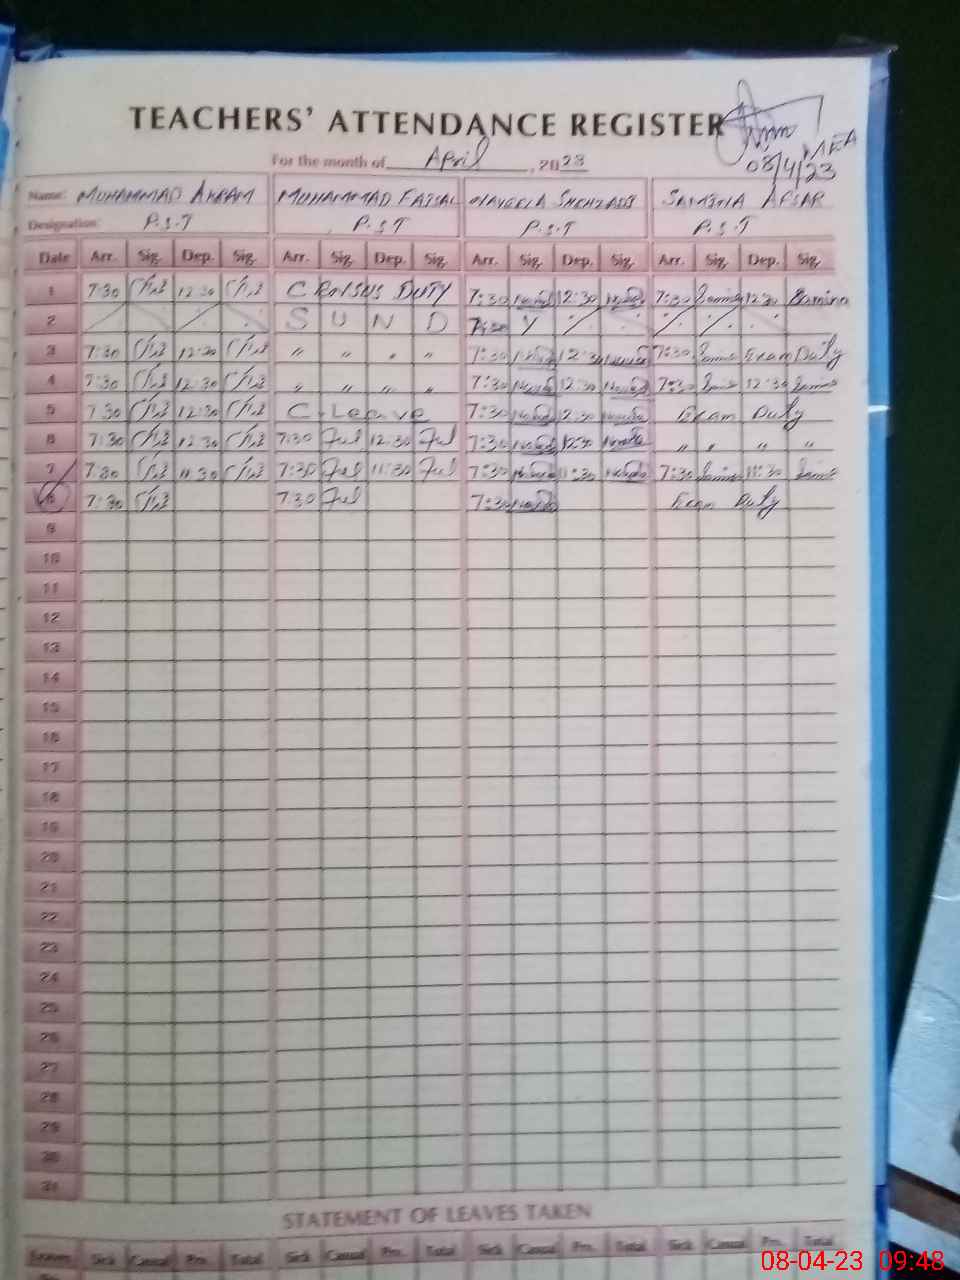 TEACHERS' ATTENDANCE REGISTER
MEA
08/4/23
For the month of April, 2023
Name: MUHAMMAD AKRAM MUHAMMAD FAISAL NAVEELA SHEHZADI SAMINA AFSAR
Designation: P.S.T P.S.T P.S.T P.S.T
Date Arr. Sig. Dep. Sig. Arr. Sig. Dep. Sig. Arr. Sig. Dep. Sig. Arr. Sig. Dep. Sig.
1 7:30 12:30 CENSUS DUTY 7:30 12:30 7:30 Samina 12:30 Samina
2 S U N D 7:30 Y
3 7:30 12:30 " " " " 7:30 12:30 7:30 Exam Duty
4 7:30 12:30 " " " " 7:30 12:30 7:30 12:30
5 7:30 12:30 C-Leave 7:30 12:30 Exam Duty
6 7:30 12:30 7:30 12:30 7:30 12:30 " " " "
7 7:30 11:30 7:30 11:30 7:30 11:30 7:30 11:30
8 7:30 7:30 7:30 Exam Duty
9
10
11
12
13
14
15
16
17
18
19
20
21
22
23
24
25
26
27
28
29
30
31
STATEMENT OF LEAVES TAKEN
Leaves Sick Casual Pri. Total Sick Casual Pri. Total Sick Casual Pri. Total Sick Casual Pri. Total
08-04-23 09:48